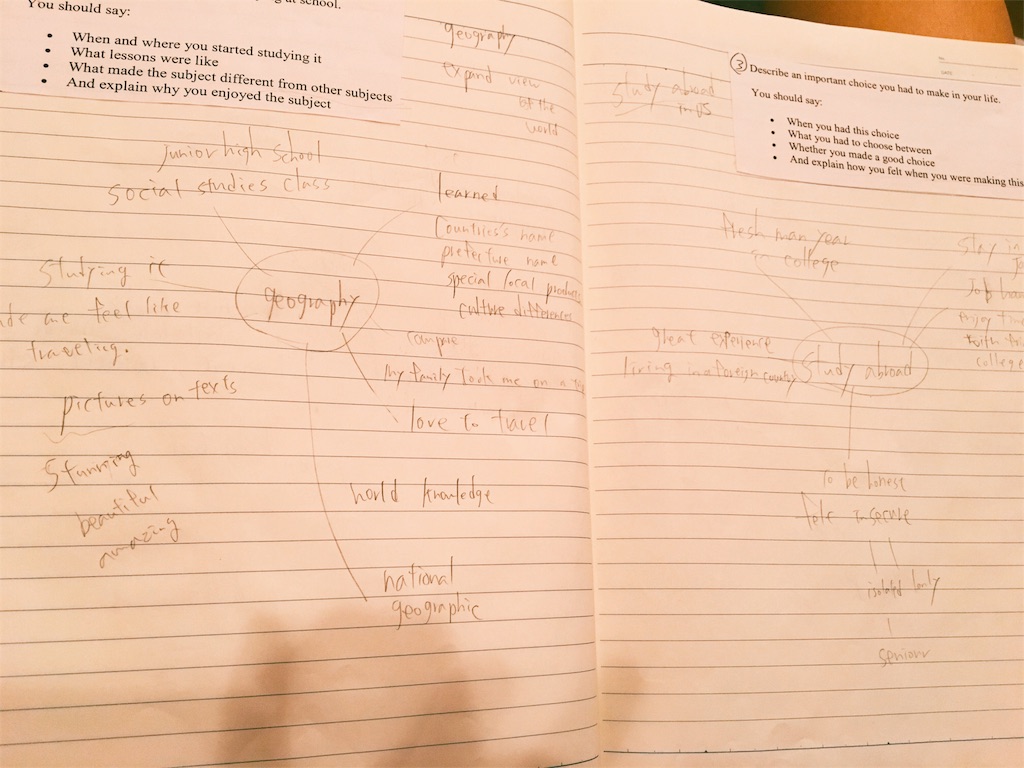 at school.
You should say:
• When and where you started studying it
• What lessons were like
• What made the subject different from other subjects
• And explain why you enjoyed the subject
geography
expand view
of the
world
junior high school
social studies class
learned
Countries's name
prefecture name
special local produc
culture differences
Studying it
de me feel like
traveling.
geography
compare
my family took me on a
love to travel
pictures on texts
stunning
beautiful
amazing
world knowledge
national
geographic
study abroad
in US
③ Describe an important choice you had to make in your life.
You should say:
• When you had this choice
• What you had to choose between
• Whether you made a good choice
• And explain how you felt when you were making this
fresh man year
in college
stay in
Job
enjoy time
with
college
great experience
living in a foreign country
study abroad
to be honest
felt insecure
isolated